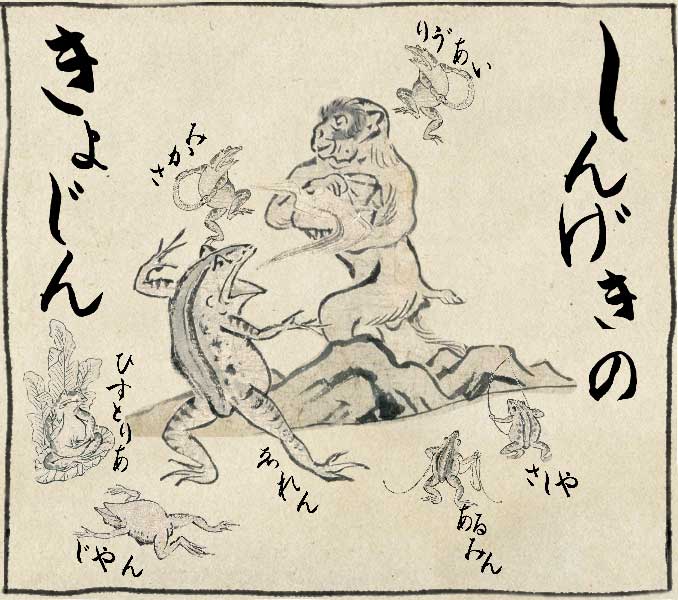 しんげきの
きょじん
りゔあい
みかさ
ひすとりあ
じやん
あるみん
さしや